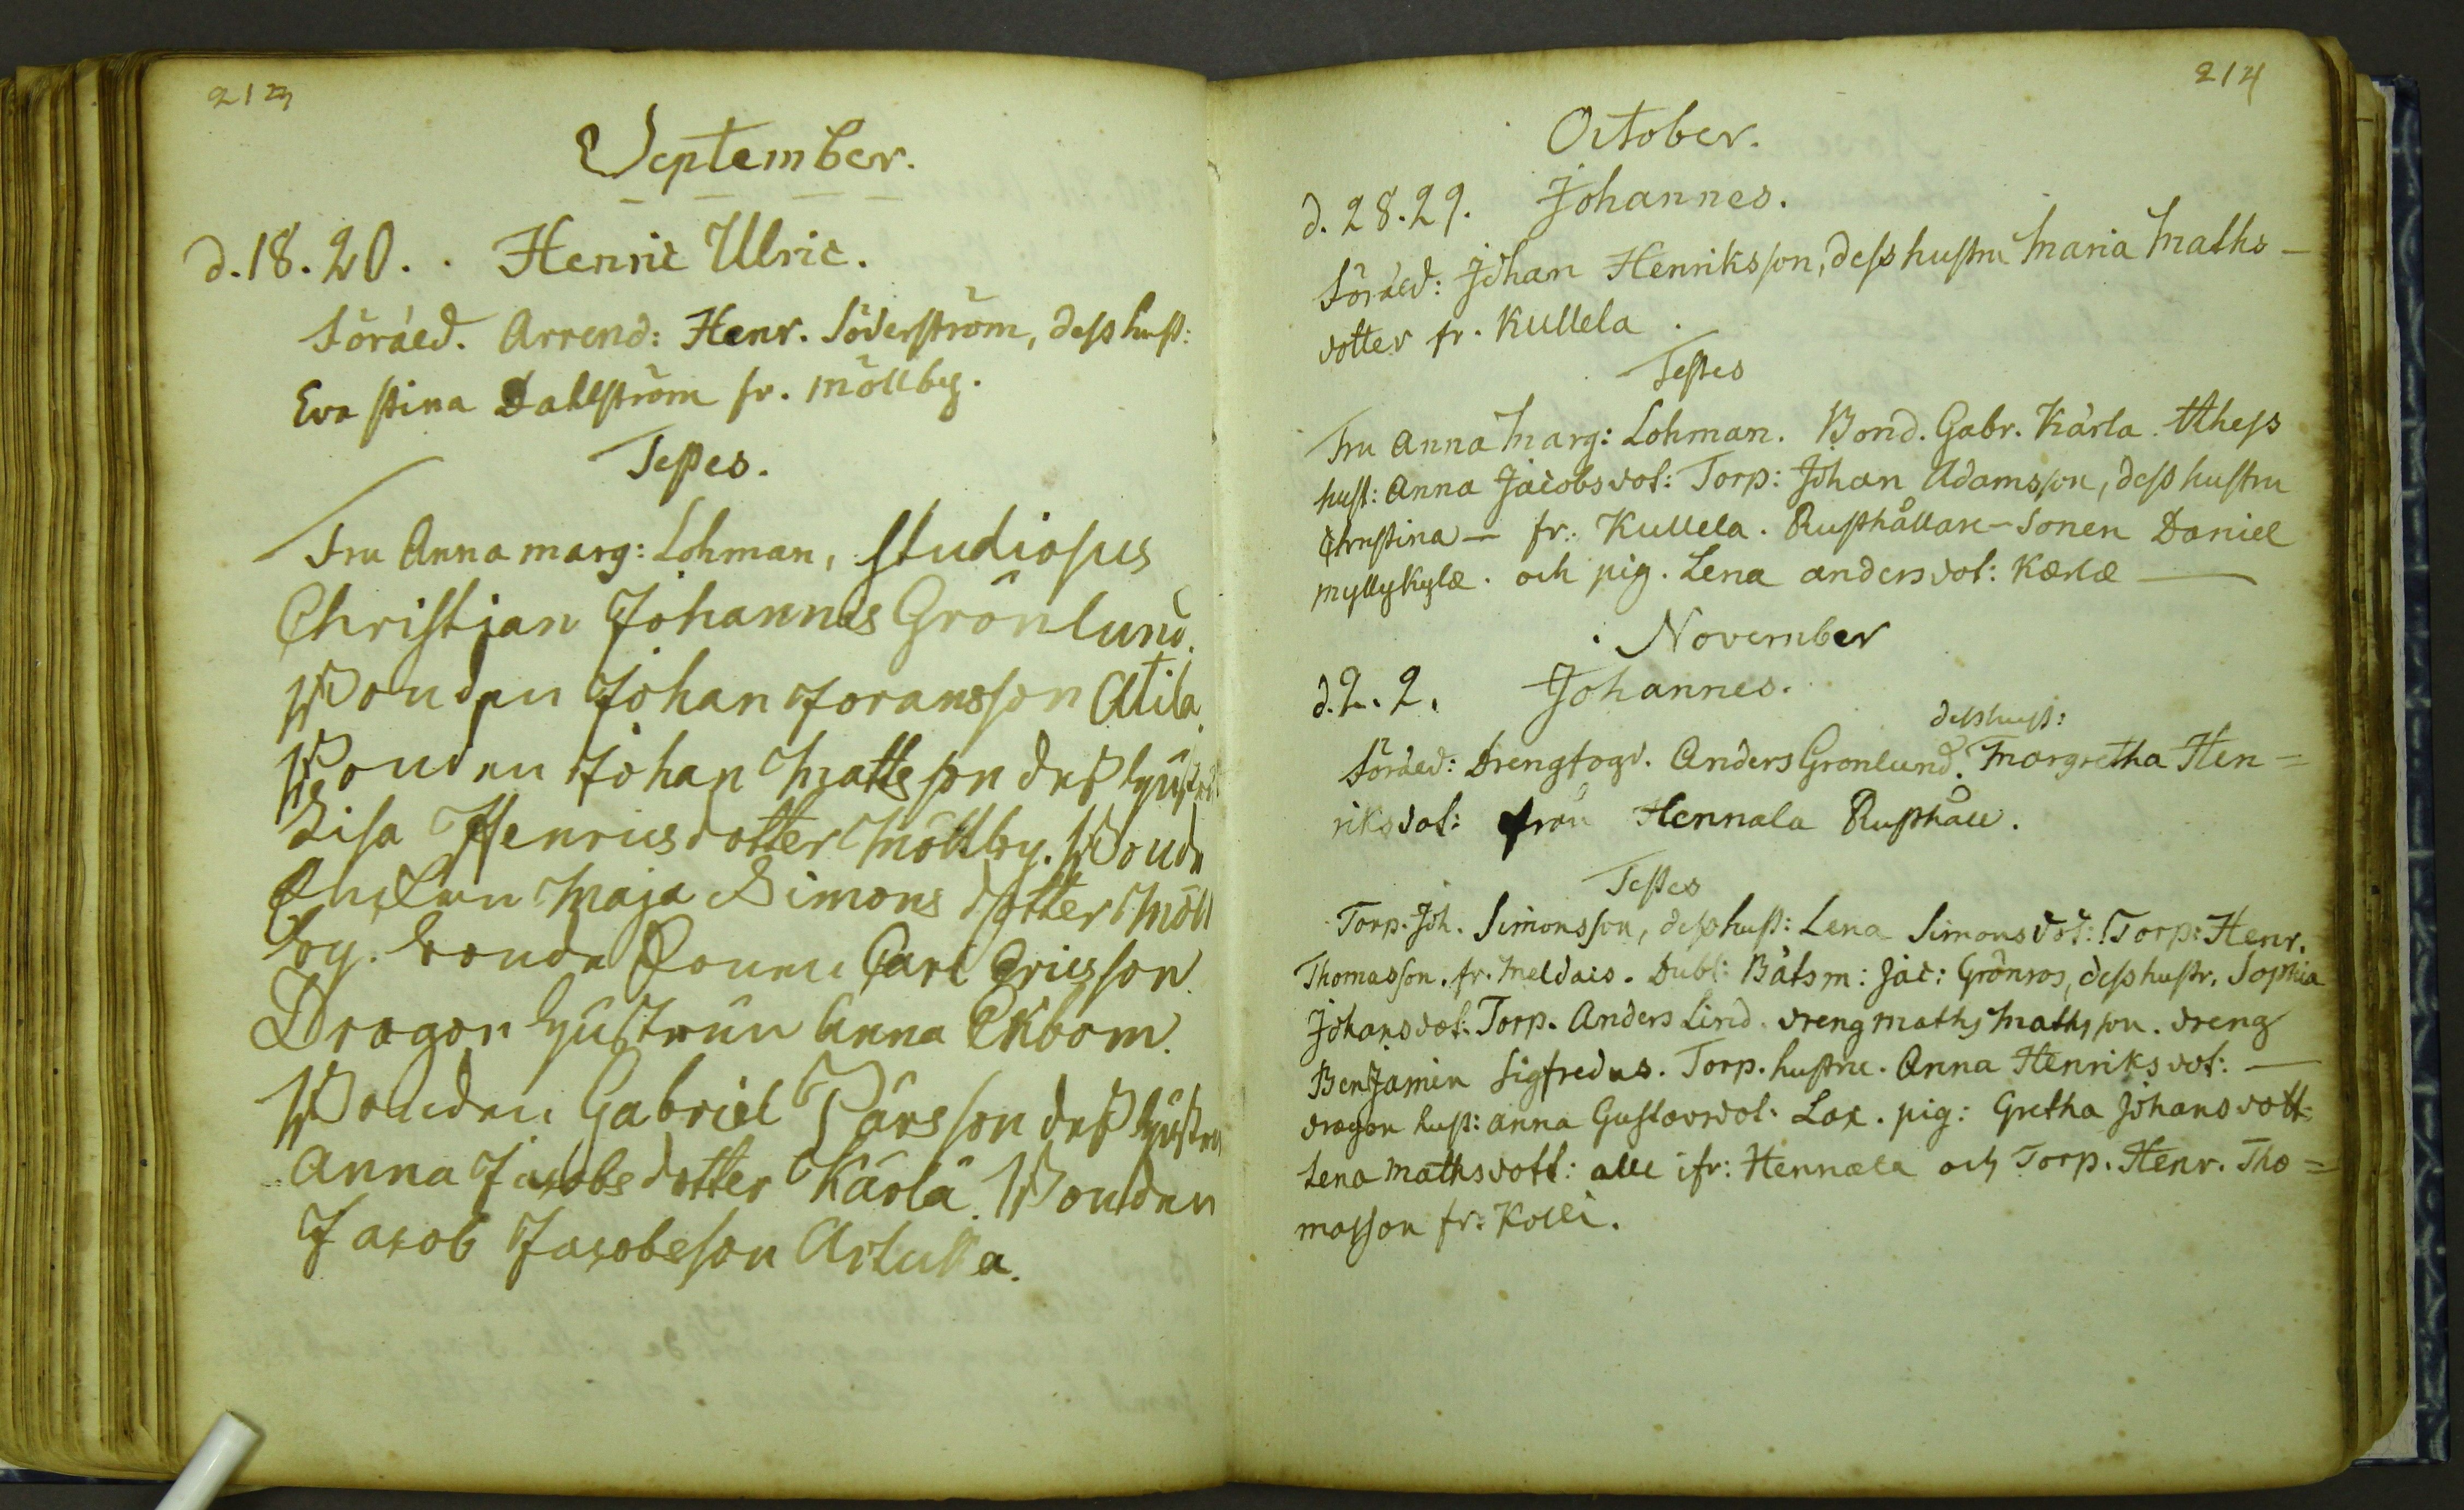 213
September.
d. 18. 20. . Henric Ulric.
Föräld. Arrend: Henr. Söderström, dess hust:
Eva Stina Dahlström fr. Möllby.
Testes.
Fru Anna Marg: Lohman, Studiosus
Christian Johannes Grönlund.
Bonden Johan Joransson Atila.
Bonden Johan Mattsson dess hustru
Lisa Henricsdotter Möllby. Bonde
Enckan Maja Simons dotter Möll
by. Bonde Sonen Carl Ericsson.
Dragon hustrun Anna Ekbom.
Bonden Gabriel Pärsson dess hustru
Anna Jacobsdotter Kärlä. Bonden
Jacob Jacobsson Artukka.
214
October.
d. 28. 29. Johannes.
Föräld: Johan Henriksson, dess hustru Maria Maths-
dotter fr. Kullela.
Testes
Fru Anna Marg: Lohman. Bond. Gabr. Kärla. dess
hust: Anna Jacobsdot: Torp: Johan Adamsson, dess hustru
Christina — fr. Kullela. Rusthållare-Sonen Daniel
Myllykylæ. och pig. Lena Andersdot: Kærlæ —
November
d. 2. 2. Johannes.
dess hust:
Föräld: Drengfogd. Anders Gronlund. Margretha Hen=
riksdot: från Hennala Rusthåll.
Testes
Torp. Joh. Simonsson, dess hust: Lena Simonsdot: Torp: Henr.
Thomasson. fr. Meldais. Dubl: Båtsm: Jac: Grönros, dess hustr. Sophia
Johansdot. Torp. Anders Lind. dreng Maths Mathsson. dreng
Benjamin Sigfredus. Torp. hustru. Anna Henriksdot: —
dragon hust: Anna Gustavsdot. Lax. pig: Gretha Johansdott=
Lena Mathsdott: alle ifr: Hennala och Torp. Henr. Tho=
masson fr: Kolli.